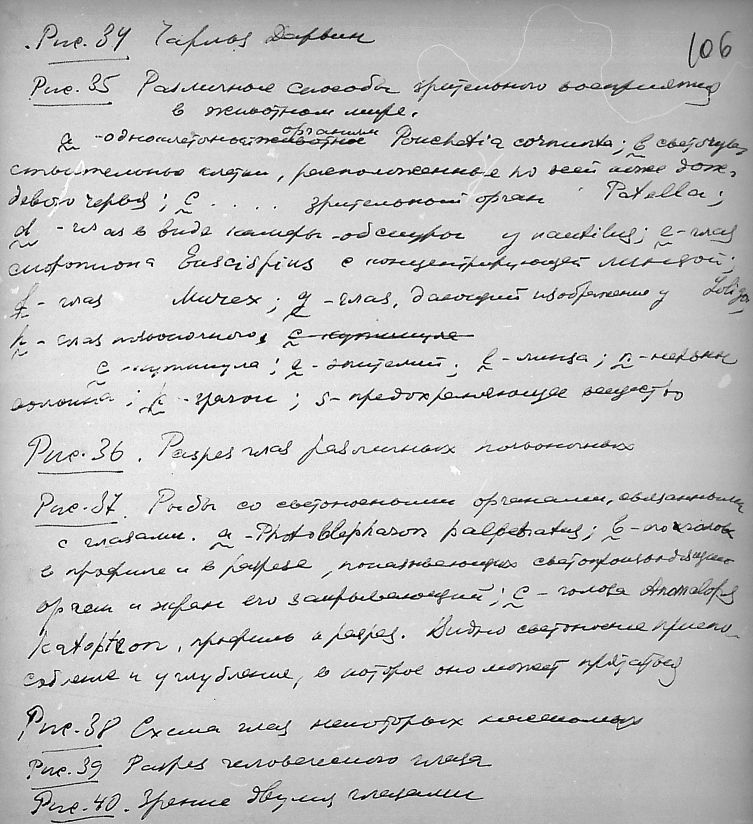 106
Рис. 34 Чарльз Дарвин
Рис. 35 Различные способы зрительного восприятия
в животном мире.
a - одноклеточное животное организм Pouchetia cornuta; b светочув
ствительные клетки, расположенные по всей коже дож-
девого червя; c .... зрительный орган Patella;
d - глаз в виде камеры-обскуры у nautilus; e - глаз
скорпиона Euscorpius с концентрирующей линзой;
f - глаз Murex; g - глаз, дающий изображение у Loligo
h - глаз позвоночного, c - кутикула
c - кутикула; e - эпителий; l - линза; n - нервн
волокна; r - s - предохраняющее вещество
Рис. 36. Разрез глаз различных позвоночных
Рис. 37. Рыбы со светоносными органами, связанными
с глазами. a - Photoblepharon palpebratus; b - его голова
в профиле и в разрезе, показывающих светопроизводящий
орган и экран его закрывающий; c - голова Anomalops
katoptron, профиль и разрез. Видно светоносное приспо-
собление и углубление, в которое оно может прятаться
Рис. 38 Схема глаз некоторых насекомых
Рис. 39 Разрез человеческого глаза
Рис. 40. Зрение двумя глазами